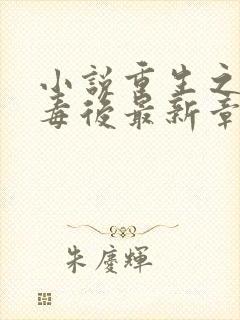 小説重生之
毒後最新章
朱慶輝